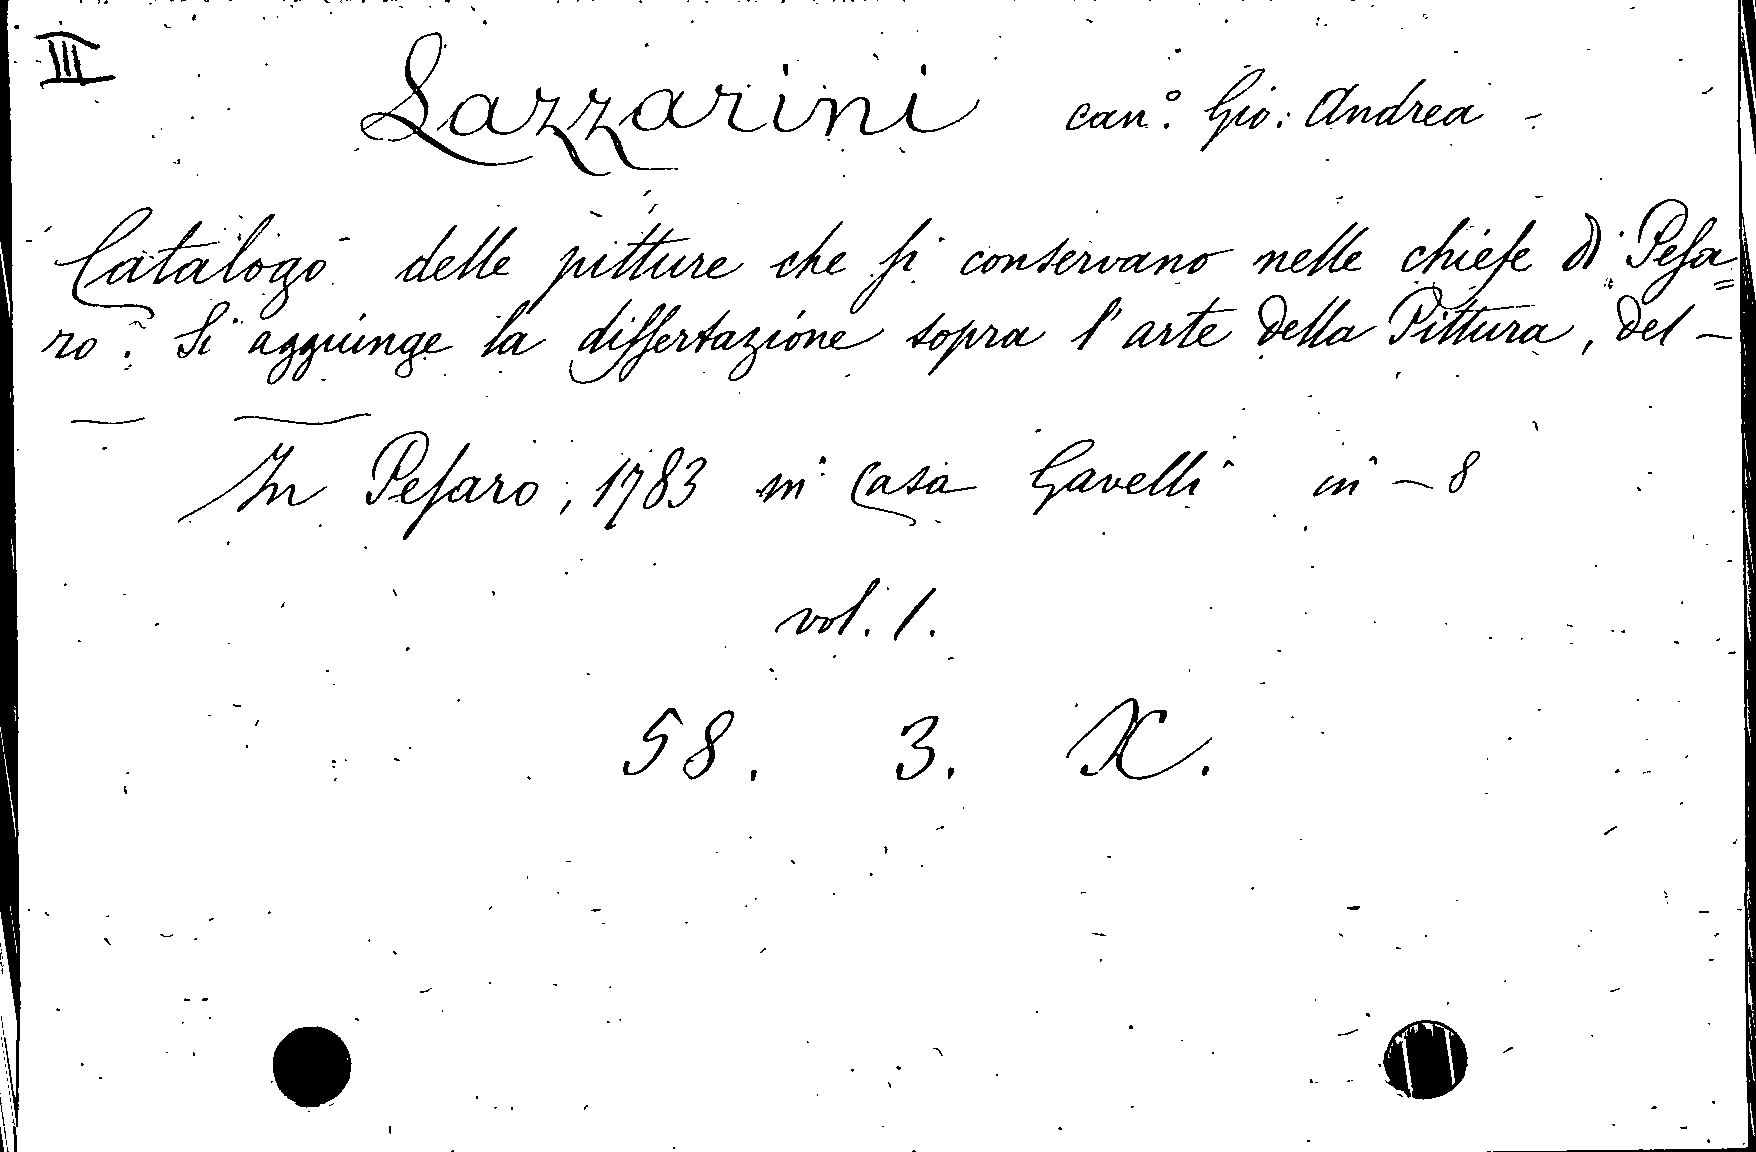 III
Lazzarini can.º Gio: Andrea -
Catalogo delle pitture che ſi conservano nelle chieſe di Peſa=
ro. Si aggiunge la diſſertazione sopra l'arte della Pittura, del -
In Peſaro, 1783 in Casa Gavelli in - 8
vol. 1.
58. 3. X.